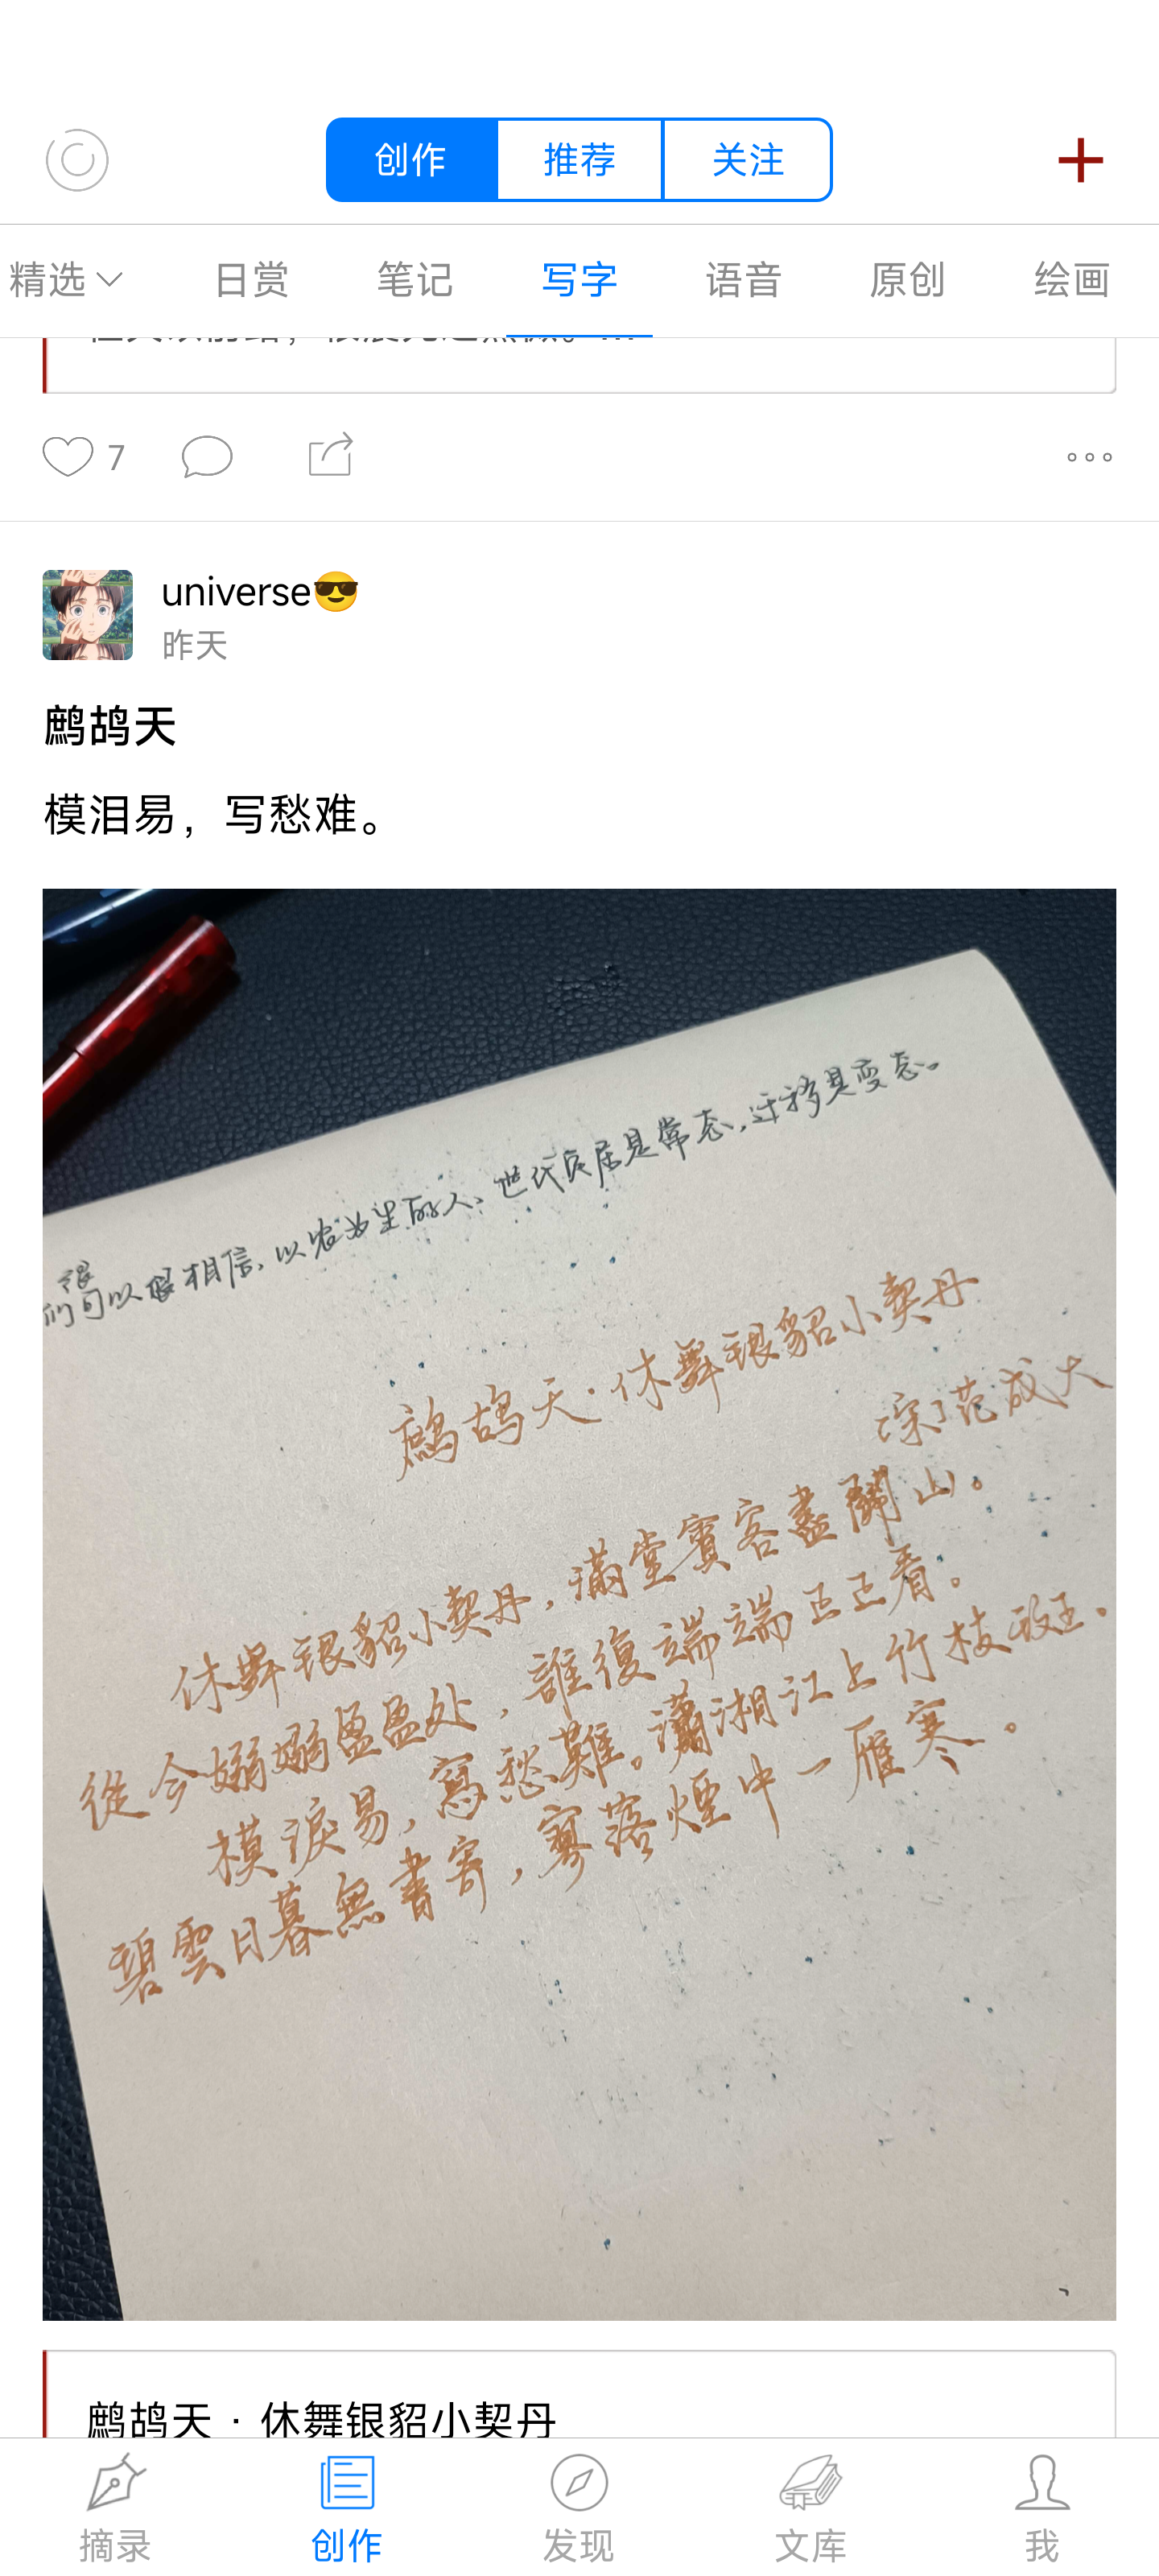 创作 推荐 关注
精选 日赏 笔记 写字 语音 原创 绘画
7
universe😎
昨天
鹧鸪天
模泪易，写愁难。
很
们可以很相信，以农为生的人，世代定居是常态，迁移是变态。
鷓鸪天·休舞银貂小契丹
〔宋〕范成大
休舞银貂小契丹，满堂賓客盡關山。
從今嫋嫋盈盈处，誰復端端正正看。
模淚易，寫愁難。瀟湘江上竹枝斑。
碧雲日暮無書寄，寥落煙中一雁寒。
鹧鸪天 · 休舞银貂小契丹
摘录 创作 发现 文库 我